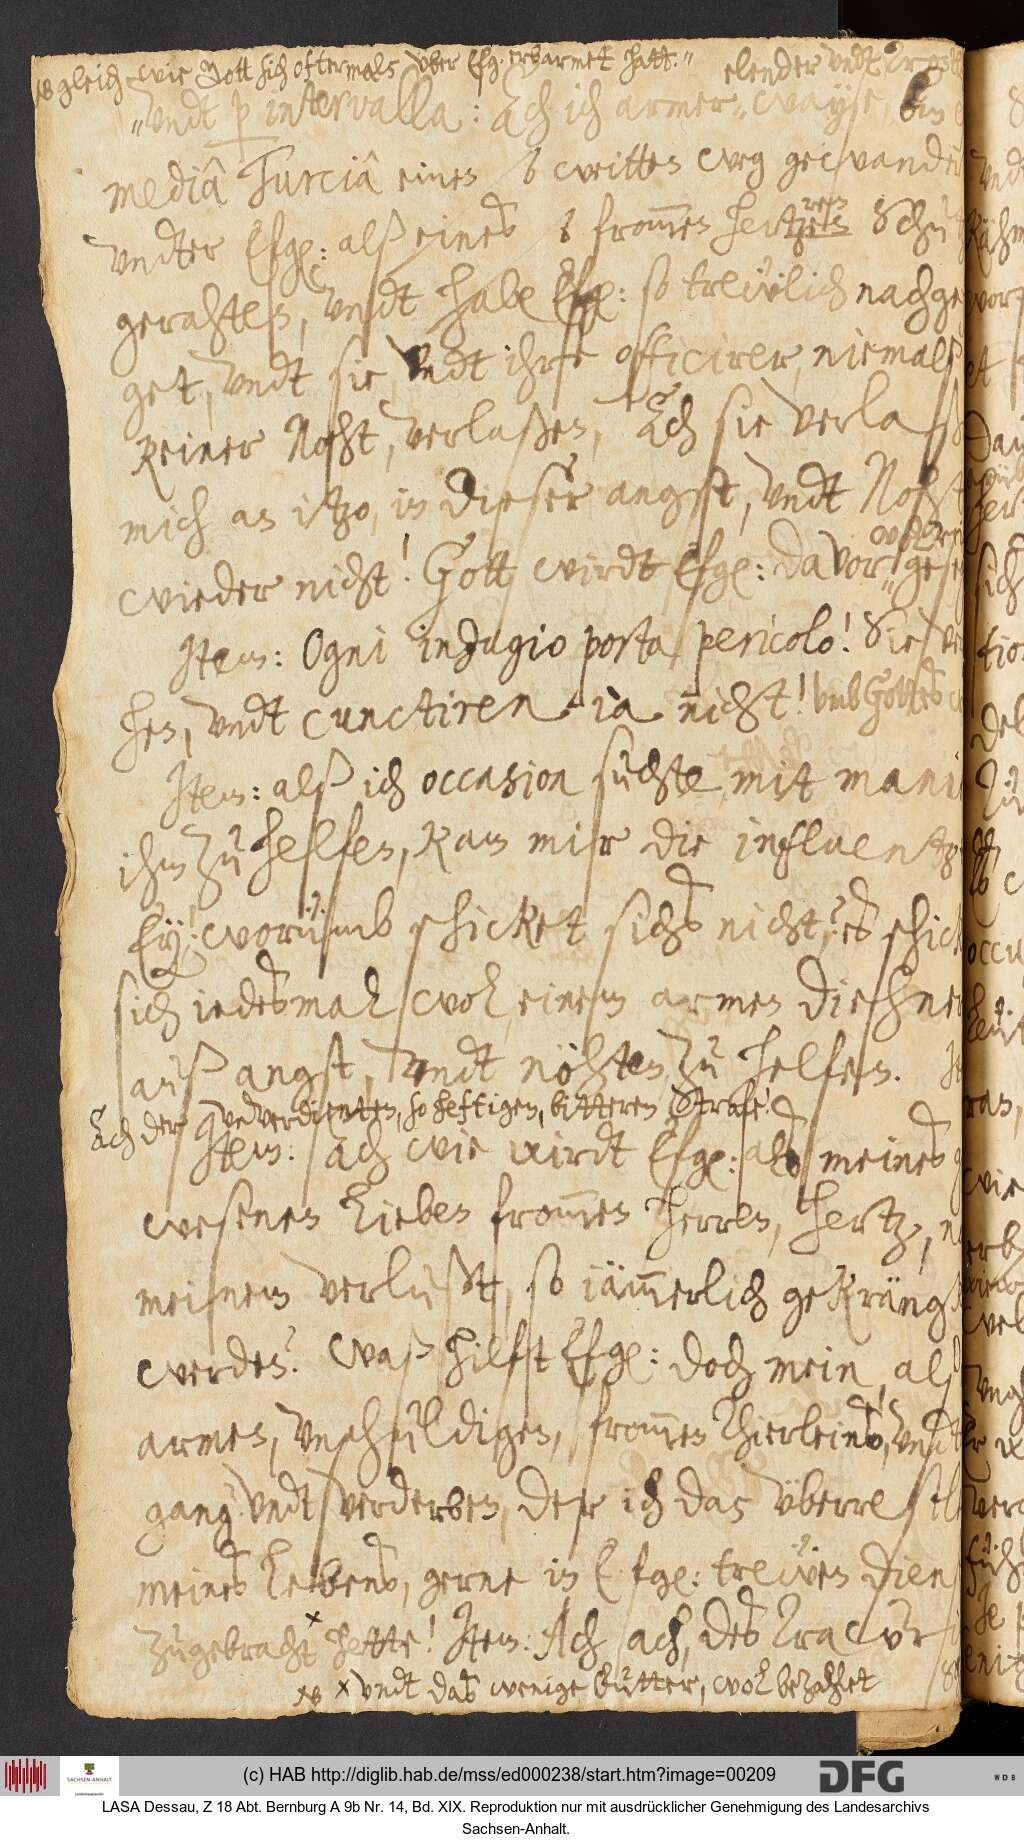 NB gleich wie Gott sich oftermals vber Efg. erbarmet hatt."
elender vndt
"vndt p intervalla: Ach ich armer wayse, bin
mediâ Turciâ eines weitten weg gewand
vndter Efge: alß eines frommen hertzens Schu
rens
gerahten, vndt habe Efge: so treẅlich nachge
get, vndt sie, vndt ihre officirer, niemalß
keiner Noht, verlaßen, Ach sie verlaß
mich an itzo, in dieser angst, vndt Noht
wieder nicht! Gott wirdt Efge: davor
Item: Ogni indugio porta pericolo! Sie
hen, vndt cunctiren ia nicht! vmb Gottes
Item: alß ich occasion suchte mit mani
ihm zu helfen, kam mir die influentz
Ey! worumb schicket sichs nicht? es schick
sich iedesmal wol, einem armen diehner
auß angst, vndt nöhten, zu helfen.
Ach der vnverdienten, so heftigen, bitteren Strafe!
Item: ach wie wirdt Efge: alß meines
wesenen lieben frommen herren, hertz,
meinem verlust, so iämmerlich gekräng
werden? Waß hilft Efge: doch mein, alß
armes, vnschuldigen, frommen Thierleins, vndt
gang vndt verderben, der ich das überre
meines Lebens, gerne in E fge: treẅen dien
zugebracht × hette! Item: Ach ach, des
NB × vndt das wenige futter, wol bezahlet
(c) HAB http://diglib.hab.de/mss/ed000238/start.htm?image=00209
SACHSEN-ANHALT
DFG
WDB
LASA Dessau, Z 18 Abt. Bernburg A 9b Nr. 14, Bd. XIX. Reproduktion nur mit ausdrücklicher Genehmigung des Landesarchivs
Sachsen-Anhalt.